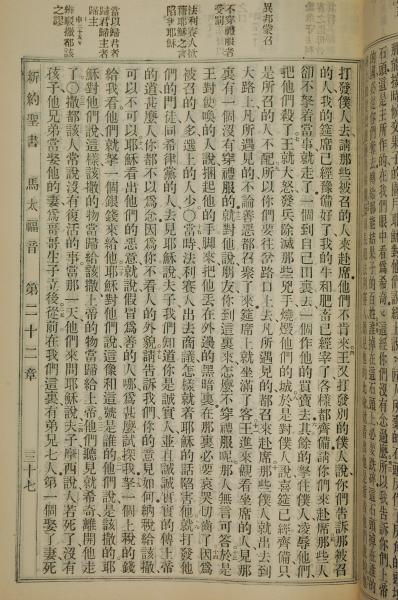 異邦蒙召
不穿禮服者
受罰
法利賽人欲
藉耶穌之言
陷害耶穌
當以歸君者
歸君歸主者
歸主
辨駁撒都該
之謬
打發僕人去請那些被召的人來赴席他們不肯來王又打發別的僕人說你們告訴那被召
的人我的筵席已經豫備好了我的牛和肥畜已經宰了各樣都齊備請你們來赴席那些人
卻不拏着當事就走了一個到自己田裏去一個作他的買賣去其餘的拏住僕人凌辱他們
把他們殺了王就大怒發兵除滅那些兇手燒燬他們的城於是對僕人說喜筵已經齊備只
是所召的人不配所以你們要往岔路口上去凡所遇見的都召來赴席那些僕人就出去到
大路上凡所遇見的不論善惡都召聚了來筵席上就坐滿了客王進來觀看坐席的人見那
裏有一個沒有穿禮服的就對他說朋友你到這裏來怎麼不穿禮服呢那人無言可答於是
王對使喚的人說捆起他的手腳來把他丟在外邊的黑暗裏在那裏必要哀哭切齒了因為
被召的人多選上的人少○當時法利賽人出去商議怎樣就着耶穌的話陷害他就打發他
們的門徒同希律黨的人去見耶穌說夫子我們知道你是誠實人並且誠誠實實的傳上帝
的道甚麼人你都不以為念因為你不看人的外貌請告訴我們你的意見如何納稅給該撒
可以不可以耶穌看出他們的惡意就說假冒為善的人哪為甚麼試探我拏一個上稅的錢
給我看他們就拏一個銀錢來給他耶穌對他們說這像和這號是誰的他們說是該撒的耶
穌對他們說這樣該撒的物當歸給該撒上帝的物當歸給上帝他們聽見就希奇離開他走
了○撒都該人常說沒有復活的事當那一天他們來問耶穌說夫子摩西說人若死了沒有
孩子他兄弟當娶他的妻為哥哥生子立後從前在我們這裏有弟兄七人第一個娶了妻死
新約聖書 馬太福音 第二十二章 三十七